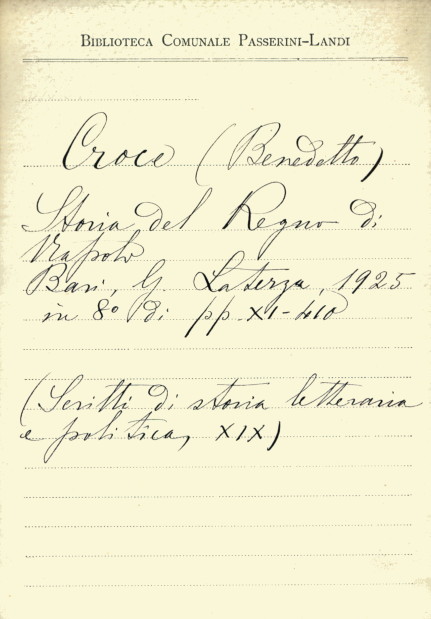 BIBLIOTECA COMUNALE PASSERINI-LANDI
Croce (Benedetto)
Storia del Regno di
Napoli
Bari, G. Laterza, 1925
in 8° di pp. XI-410
(Scritti di storia letteraria
e politica, XIX)